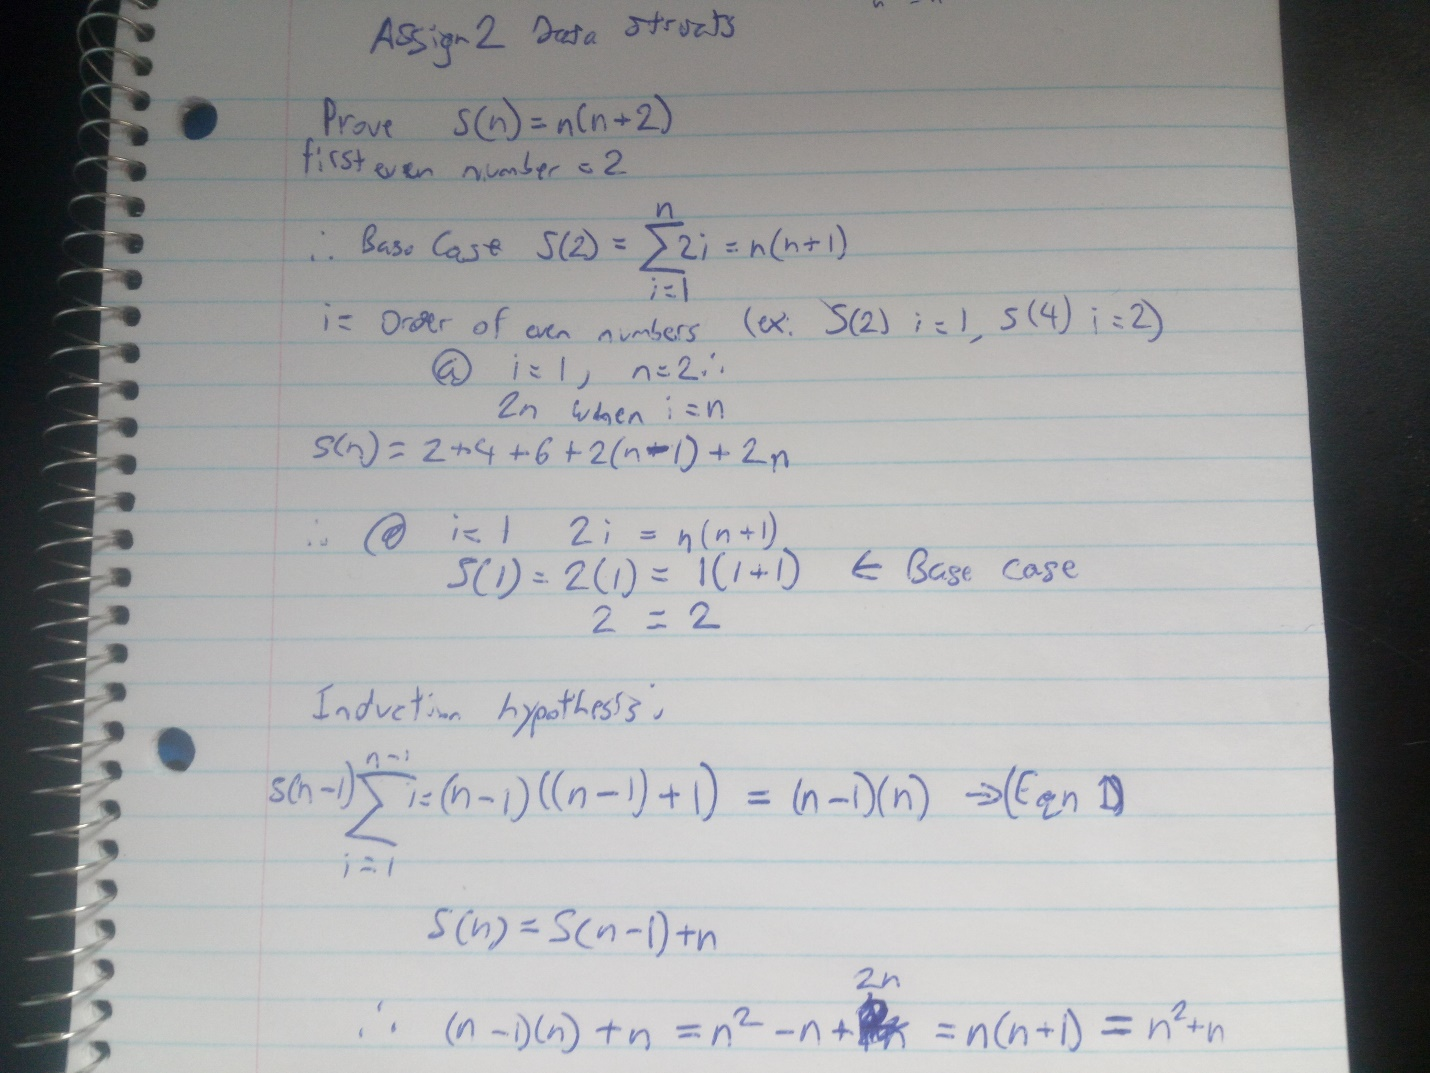 Assign 2 Data structs
Prove S(n) = n(n+2)
first even number = 2
∴ Base Case S(2) = n∑i=1 2i = n(n+1)
i = Order of even numbers (ex: S(2) i=1, S(4) i=2)
@ i=1, n=2 ∴
2n when i=n
S(n) = 2+4+6+2(n-1)+2n
∴ @ i=1 2i = n(n+1)
S(1) = 2(1) = 1(1+1) ← Base case
2 = 2
Induction hypothesis:
S(n-1) n-1∑i=1 i = (n-1)((n-1)+1) = (n-1)(n) → (Eqn 1)
S(n) = S(n-1)+n
∴ (n-1)(n) + n = n² - n + 2n = n(n+1) = n²+n